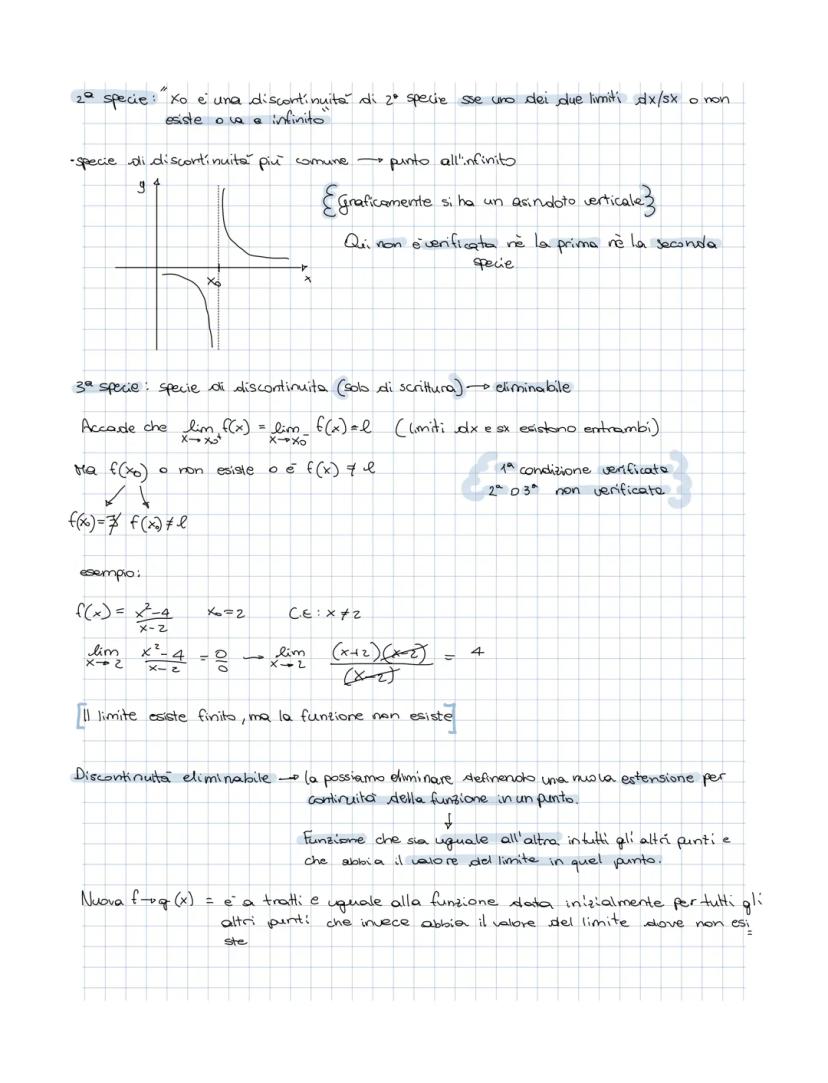 2ª specie: "x₀ é una discontinuitá di 2ª specie sse uno dei due limiti dx/sx o non
esiste o va a infinito"
-specie di discontinuitá piú comune → punto all'infinito
y
{Graficamente si ha un asindoto verticale}
Qui non é verificata nè la prima nè la seconda
specie
x₀
x
3ª specie: specie di discontinuita (solo di scrittura) → eliminabile
Accade che lim x→x₀⁺ f(x) = lim x→x₀⁻ f(x) = l (limiti dx e sx esistono entrambi)
Ma f(x₀) o non esiste o é f(x) ≠ l
1ª condizione verificata
2ª o 3ª non verificata
f(x₀)=∄ f(x₀)≠l
esempio:
f(x) = x²-4/x-2 x₀=2 C.E: x≠2
lim x→2 x²-4/x-2 = 0/0 → lim x→2 (x+2)(x-2)/(x-2) = 4
[Il limite esiste finito, ma la funzione non esiste]
Discontinuitá eliminabile → la possiamo eliminare definendo una nuova estensione per
continuitá della funzione in un punto.
↓
Funzione che sia uguale all'altra in tutti gli altri punti e
che abbia il valore del limite in quel punto.
Nuova f→g(x) = é a tratti e uguale alla funzione data inizialmente per tutti gli
altri punti che invece abbia il valore del limite dove non esi
ste